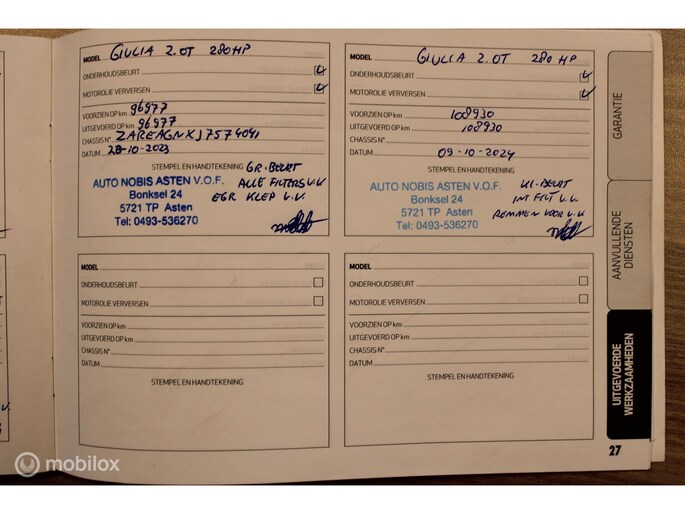 MODEL GIULIA 2.0T 280HP
ONDERHOUDSBEURT
MOTOROLIE VERVERSEN
VOORZIEN OP km 96977
UITGEVOERD OP km 96977
CHASSIS N° ZAREAGNXJ7574041
DATUM 23-10-2023
STEMPEL EN HANDTEKENING
GR. BEURT
ALLE FILTERS V.V
EGR KLEP V.V.
AUTO NOBIS ASTEN V.O.F.
Bonksel 24
5721 TP Asten
Tel: 0493-536270
MODEL GIULIA 2.0T 280 HP
ONDERHOUDSBEURT
MOTOROLIE VERVERSEN
VOORZIEN OP km 108930
UITGEVOERD OP km 108930
CHASSIS N°
DATUM 09-10-2024
STEMPEL EN HANDTEKENING
AUTO NOBIS ASTEN V.O.F.
Bonksel 24
5721 TP Asten
Tel: 0493-536270
KL-BEURT
INT FILT V.V.
REMMEN VOOR V.V
MODEL
ONDERHOUDSBEURT
MOTOROLIE VERVERSEN
VOORZIEN OP km
UITGEVOERD OP km
CHASSIS N°
DATUM
STEMPEL EN HANDTEKENING
MODEL
ONDERHOUDSBEURT
MOTOROLIE VERVERSEN
VOORZIEN OP km
UITGEVOERD OP km
CHASSIS N°
DATUM
STEMPEL EN HANDTEKENING
GARANTIE
AANVULLENDE
DIENSTEN
UITGEVOERDE
WERKZAAMHEDEN
27
mobilox